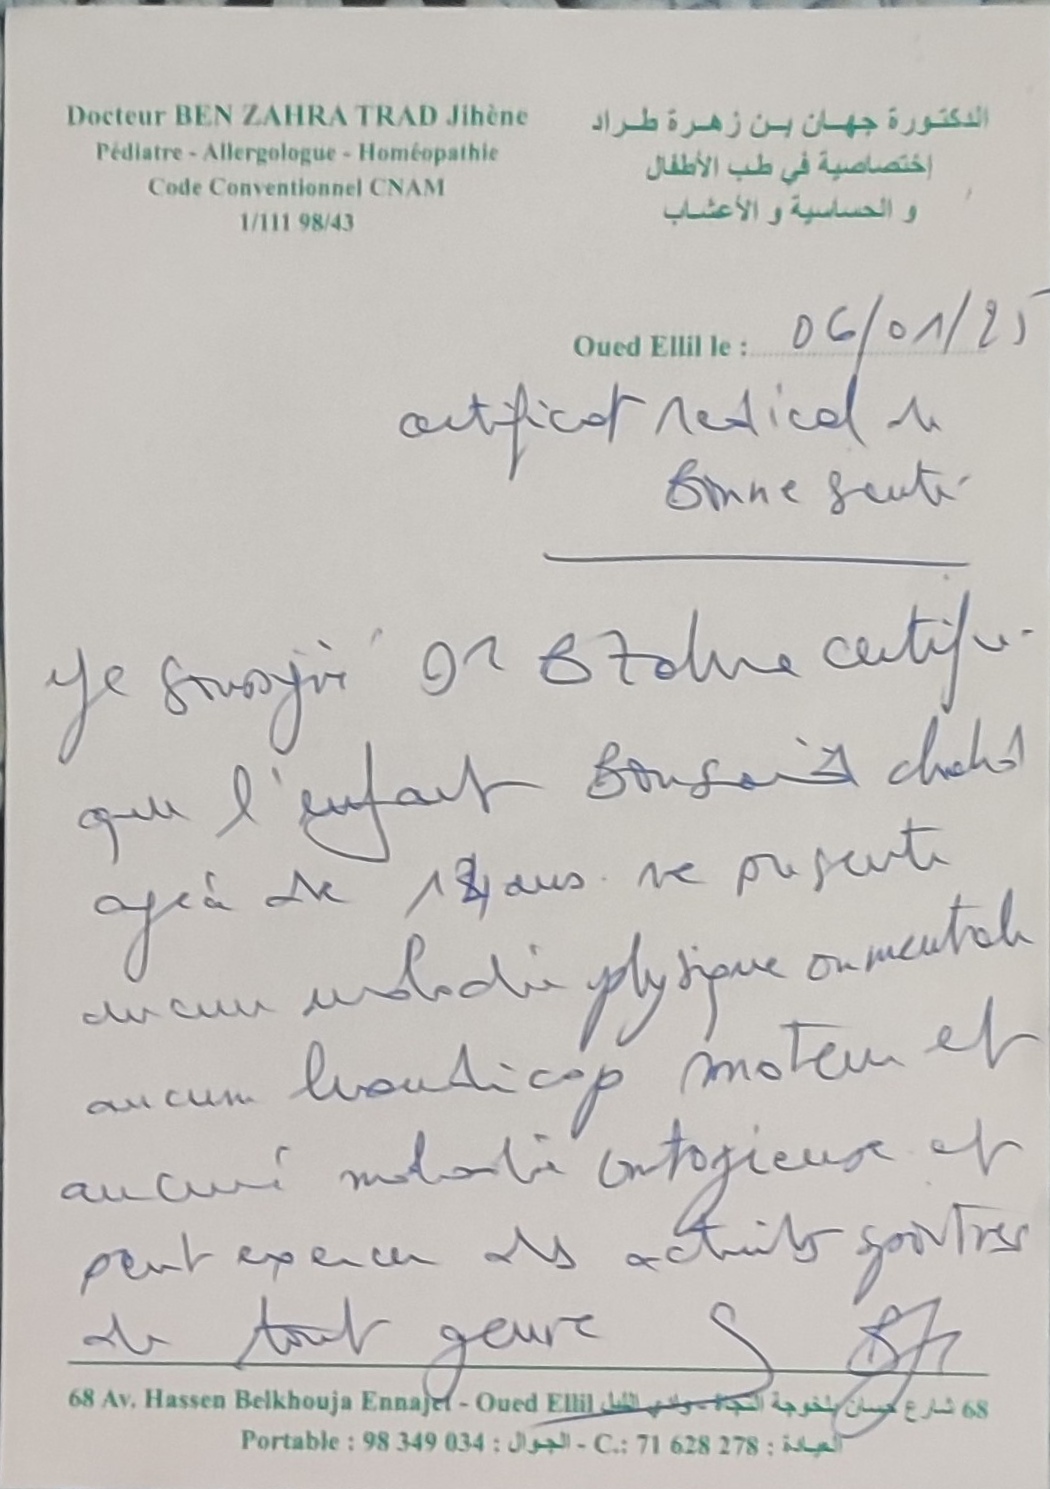 Docteur BEN ZAHRA TRAD Jihène
Pédiatre - Allergologue - Homéopathie
Code Conventionnel CNAM
1/111 98/43
الدكتورة جهان بن زهرة طراد
إختصاصية في طب الأطفال
و الحساسية و الأعشاب
Oued Ellil le : 06/01/25
certificat medical de
Bonne santé
Je soussigné Dr B Zahra certifie
que l'enfant
agée de ans ne présente
aucune maladie physique ou mentale
aucun handicap moteur et
aucune maladie contagieuse et
peut exercer des activités sportives
de tout genre
68 Av. Hassen Belkhouja Ennajet - Oued Ellil 68 شارع حسان بلخوجة النجاة - وادي الليل
Portable : 98 349 034 : الجوال - C.: 71 628 278 : العيادة